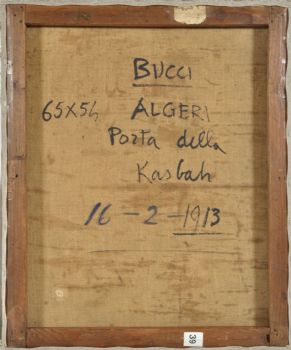 BUCCI
65X54 ALGERI
Porta della
Kasbah
16-2-1913
39